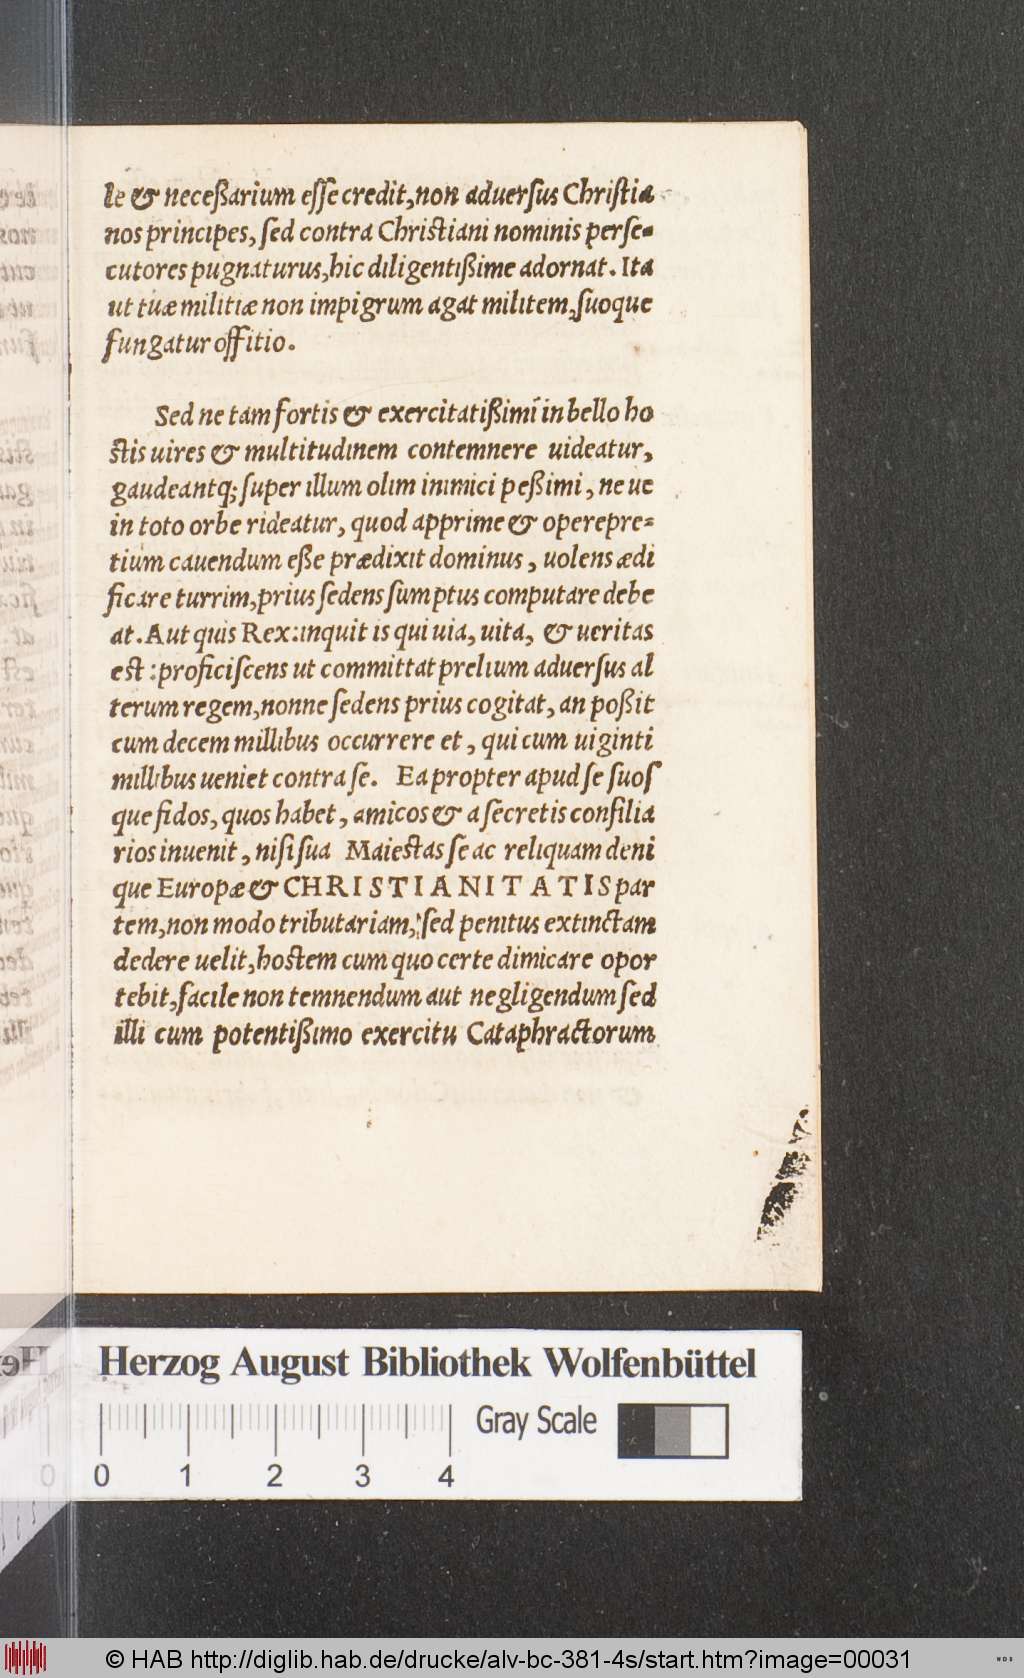 le & neceßarium eſſe credit, non aduerſus Chriſtia
nos principes, ſed contra Chriſtiani nominis perſe-
cutores pugnaturus, hic diligentißime adornat. Ita
ut tuæ militiæ non impigrum agat militem, ſuoque
fungatur offitio.
Sed ne tam fortis & exercitatißimi in bello ho
ſtis uires & multitudinem contemnere uideatur,
gaudeantq; ſuper illum olim inimici peßimi, ne ue
in toto orbe rideatur, quod apprime & operepre-
tium cauendum eße prædixit dominus, uolens ædi
ficare turrim, prius ſedens ſumptus computare debe
at. Aut quis Rex: inquit is qui uia, uita, & ueritas
est: proficiſcens ut committat prelium aduerſus al
terum regem, nonne ſedens prius cogitat, an poßit
cum decem millibus occurrere et, qui cum uiginti
millibus ueniet contra ſe. Ea propter apud ſe ſuoſ
que fidos, quos habet, amicos & a ſecretis conſilia
rios inuenit, niſi ſua Maiestas ſe ac reliquam deni
que Europæ & CHRISTIANITATIS par
tem, non modo tributariam, ſed penitus extinctam
dedere uelit, hostem cum quo certe dimicare opor
tebit, facile non temnendum aut negligendum ſed
illi cum potentißimo exercitu Cataphractorum
Herzog August Bibliothek Wolfenbüttel
Gray Scale
0 1 2 3 4
© HAB http://diglib.hab.de/drucke/alv-bc-381-4s/start.htm?image=00031